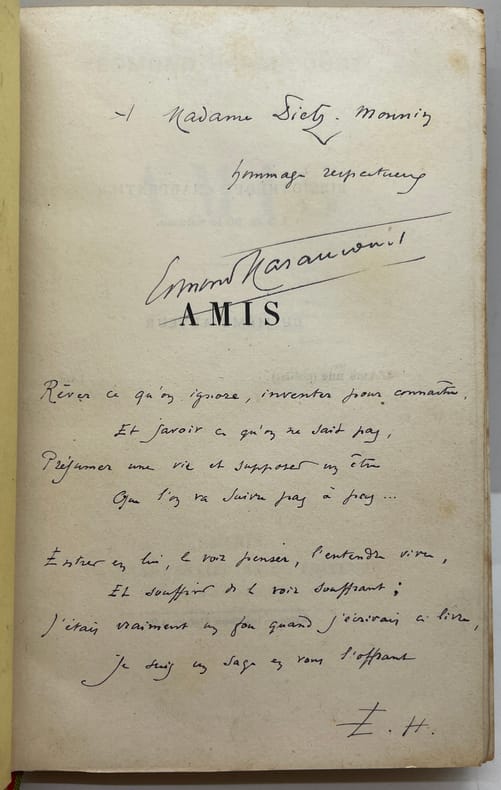 A Madame Dietz-Monnin
hommage respectueux
Edmond Haraucourt
AMIS
Rêver ce qu'on ignore, inventer pour connaître,
Et savoir ce qu'on ne sait pas,
Présumer une vie et supposer un être
Que l'on va suivre pas à pas...
Entrer en lui, le voir penser, l'entendre vivre,
Et souffrir de le voir souffrant ;
J'étais vraiment un fou quand j'écrivais ce livre,
Je suis un sage en vous l'offrant
E. H.